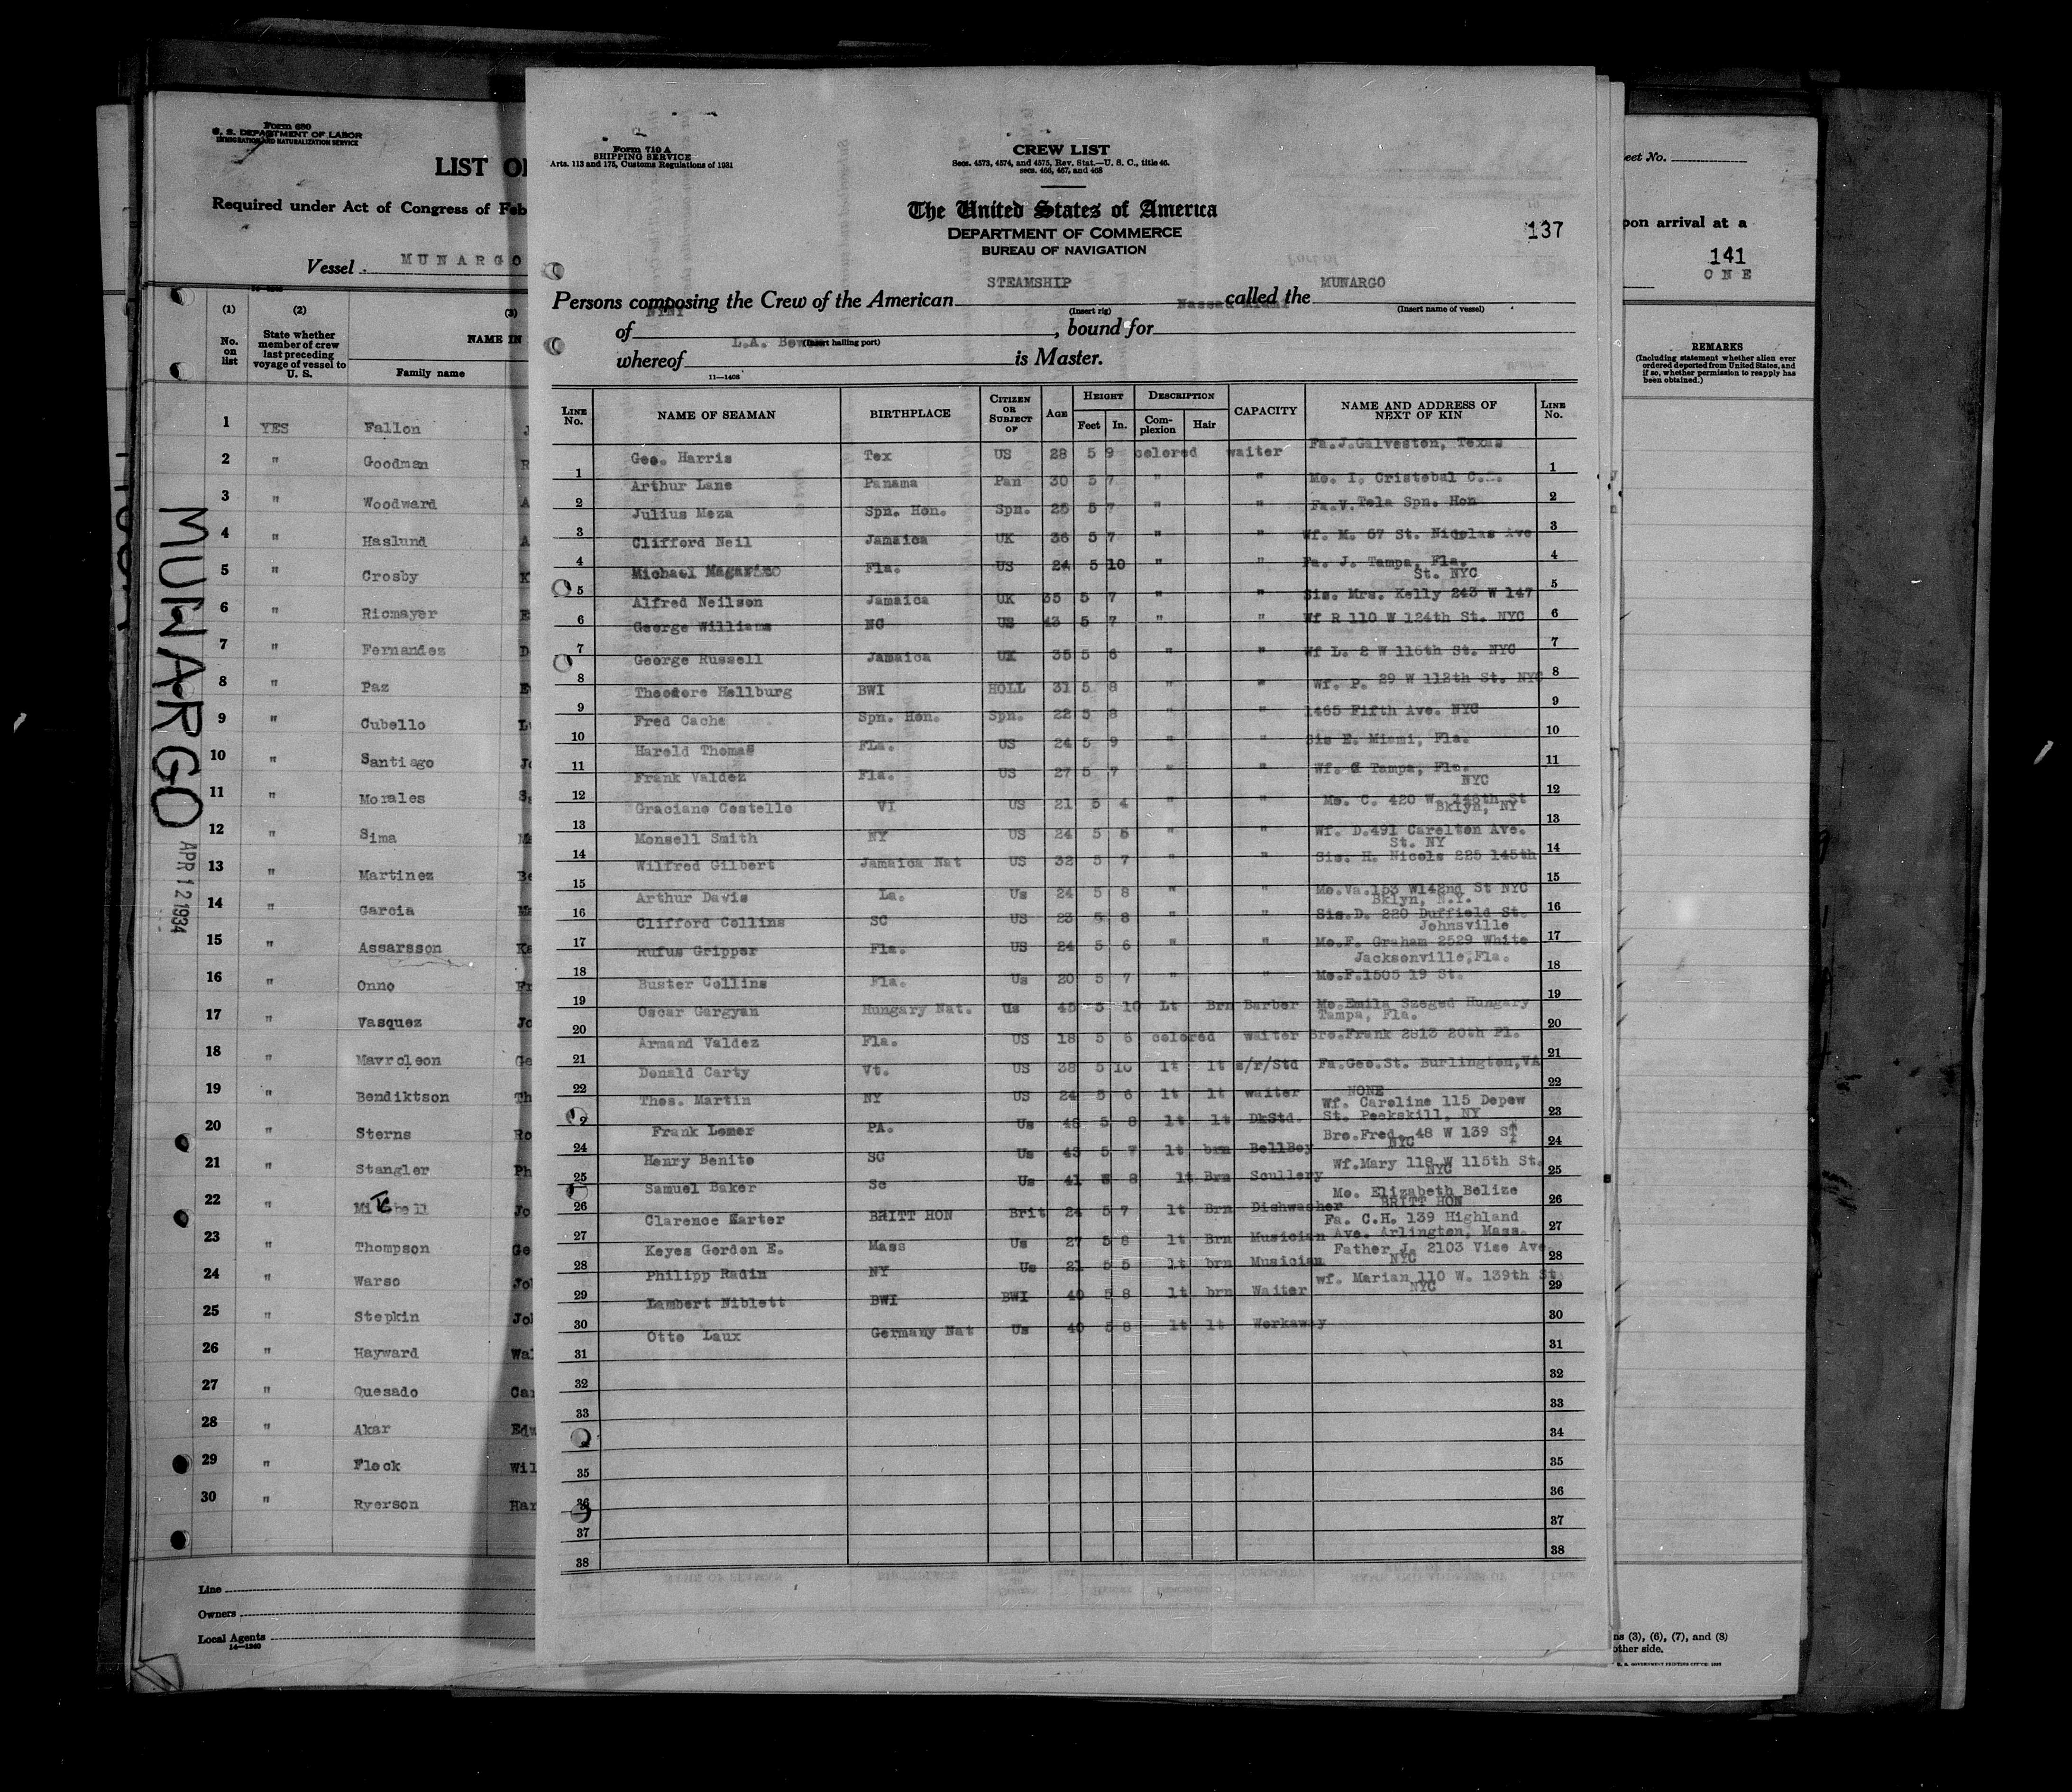 Form 680
U. S. DEPARTMENT OF LABOR
IMMIGRATION AND NATURALIZATION SERVICE
LIST O
Required under Act of Congress of Feb
Vessel MUNARGO
(1) (2) (3)
No. on list
State whether member of crew last preceding voyage of vessel to U. S.
NAME IN
Family name
1 YES Fallon J
2 " Goodman R
3 " Woodward A
4 " Haslund A
5 " Crosby K
6 " Ricmayer E
7 " Fernandez D
8 " Paz
9 " Cubello
10 " Santiago Jo
11 " Morales
12 " Sima
13 " Martinez Be
14 " Garcia
15 " Assarsson
16 " Onno Fr
17 " Vasquez Jo
18 " Mavroleon Ge
19 " Bendiktson Th
20 " Sterns Ro
21 " Stangler Ph
22 " Mitchell Jo
23 " Thompson Ge
24 " Warso Jo
25 " Stepkin Jo
26 " Hayward Wa
27 " Quesado Ca
28 " Akar Edw
29 " Fleck Wil
30 " Ryerson Har
Line
Owners
Local Agents
14—1240
MUNARGO
APR 12 1934
Form 710 A
SHIPPING SERVICE
Arts. 113 and 175, Customs Regulations of 1931
CREW LIST
Secs. 4573, 4574, and 4575, Rev. Stat.—U. S. C., title 46.
secs. 466, 467, and 468
The United States of America
DEPARTMENT OF COMMERCE
BUREAU OF NAVIGATION
137
Persons composing the Crew of the American STEAMSHIP called the MUNARGO
(Insert rig) (Insert name of vessel)
of NYNY, bound for Nassau Miami
(Insert hailing port)
whereof L.A. is Master.
11—1408
LINE No. NAME OF SEAMAN BIRTHPLACE CITIZEN OR SUBJECT OF AGE HEIGHT Feet In. DESCRIPTION Complexion Hair CAPACITY NAME AND ADDRESS OF NEXT OF KIN LINE No.
1 Geo. Harris Tex US 28 5 9 colored waiter Fa.J.Galveston, Texas 1
2 Arthur Lane Panama Pan 30 5 7 " " Mo. I. Cristobal 2
3 Julius Meza Spn. Hon. Spn. 25 5 7 " " Fa.V.Tela Spn. Hon 3
4 Clifford Neil Jamaica UK 36 5 7 " " Wf. M. 67 St. Nicolas Ave 4
5 Michael Fla. US 24 5 10 " " Fa. J. Tampa, Fla. 5
St. NYC
6 Alfred Neilson Jamaica UK 35 5 7 " " Sis. Mrs. Kelly 243 W 147 6
7 George Williams NC US 43 5 7 " " Wf R 110 W 124th St. NYC 7
8 George Russell Jamaica UK 35 5 6 " " Wf L. 2 W 116th St. NYC 8
9 Theodore Hallburg BWI HOLL 31 5 8 " " Wf. P. 29 W 112th St. NYC 9
10 Fred Cache Spn. Hon. Spn. 22 5 8 " " 1465 Fifth Ave. NYC 10
11 Harold Thomas Fla. US 24 5 9 " " Sis E. Miami, Fla. 11
12 Frank Valdez Fla. US 27 5 7 " " Wf. Tampa, Fla. 12
NYC
13 Graciano Costello VI US 21 5 4 " " Mo. C. 420 W. 146th St 13
Bklyn, NY
14 Monsell Smith NY US 24 5 5 " " Wf. D.491 Carelton Ave. 14
St. NY
15 Wilfred Gilbert Jamaica Nat US 32 5 7 " " Sis. H. Nicols 225 145th 15
16 Arthur Davis La. Us 24 5 8 " " Mo.Va.153 W142nd St NYC 16
Bklyn, N.Y.
17 Clifford Collins SC US 23 5 8 " " Sis.D. 220 Duffield St. 17
Johnsville
18 Rufus Gripper Fla. US 24 5 6 " " Mo.F. Graham 2529 White 18
Jacksonville,Fla.
19 Buster Collins Fla. Us 20 5 7 " " Mo.F.1505 19 St. 19
20 Oscar Gargyan Hungary Nat. Us 45 5 10 Lt Brn Barber Mo.Emila Szeged Hungary 20
Tampa, Fla.
21 Armand Valdez Fla. US 18 5 6 colored waiter Bro.Frank 2813 20th Pl. 21
22 Donald Carty Vt. US 38 5 10 lt lt s/r/Std Fa.Geo.St. Burlington,VA 22
Thos. Martin NY US 24 5 6 lt lt waiter NONE 23
Frank Lomer PA. Us 48 5 8 lt lt DkStd. Wf. Caroline 115 Depew St. Peekskill, NY
24 Henry Benito SC Us 43 5 7 lt brn BellBoy Bro.Fred. 48 W 139 ST NYC 24
25 Samuel Baker Sc Us 41 5 8 lt Brn Scullery Wf.Mary 118 W 115th St. NYC 25
26 Clarence Karter BRITT HON Brit 24 5 7 lt Brn Dishwasher Mo. Elizabeth Belize BRITT HON 26
27 Keyes Gordon E. Mass Us 27 5 8 lt Brn Musician Fa. C.H. 139 Highland Ave. Arlington, Mass. 27
28 Philipp Radin NY Us 21 5 5 lt brn Musician Father J. 2103 Vise Ave NYC 28
29 Lambert Niblett BWI BWI 40 5 8 lt brn Waiter wf. Marian 110 W. 139th St. NYC 29
30 Otto Laux Germany Nat Us 40 5 8 lt lt Workaway 30
31 31
32 32
33 33
34
35 35
36 36
37 37
38 38
eet No.
pon arrival at a
141
ONE
REMARKS
(Including statement whether alien ever ordered deported from United States, and if so, whether permission to reapply has been obtained.)
ns (3), (6), (7), and (8)
other side.
U. S. GOVERNMENT PRINTING OFFICE